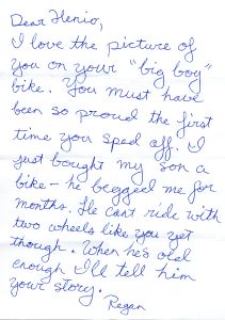 Dear Henio,
I love the picture of
you on your "big boy"
bike. You must have
been so proud the first
time you sped off. I
just bought my son a
bike - he begged me for
months. He cant ride with
two wheels like you yet
though. When he's old
enough I'll tell him
your story.
Regan